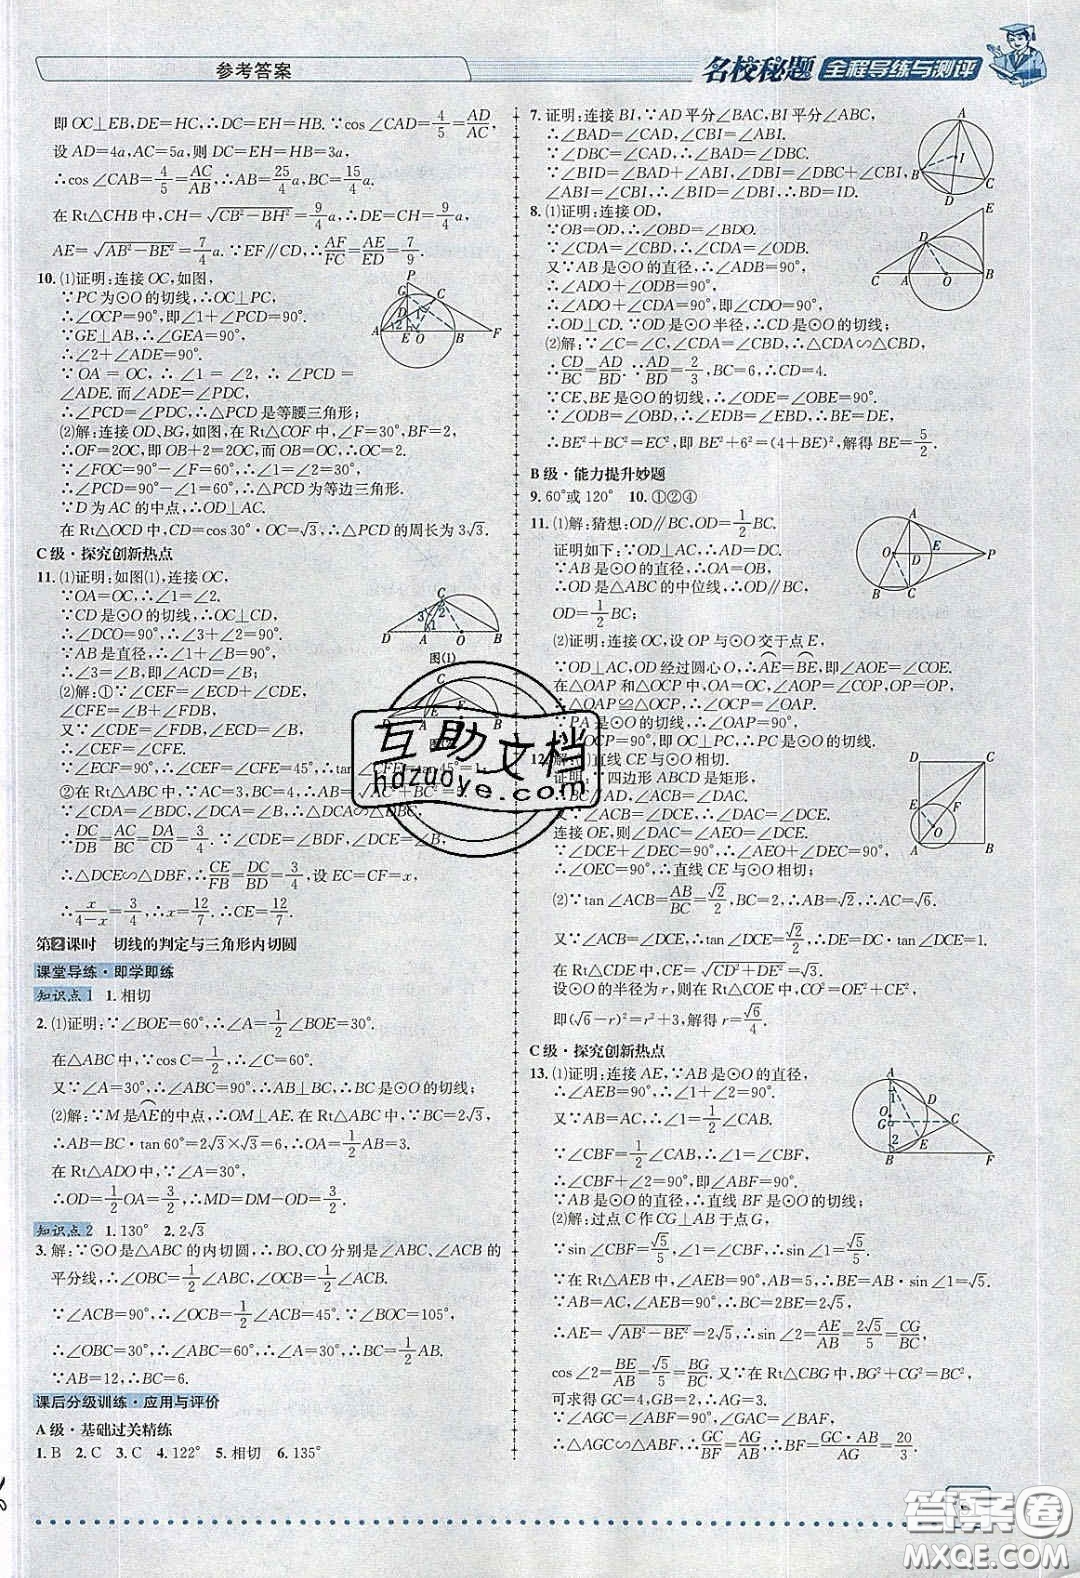 参考答案
名校秘题 全程导练与测评
即OC⊥EB,DE=HC,∴DC=EH=HB.∵cos∠CAD=4/5=AD/AC,
设AD=4a,AC=5a,则DC=EH=HB=3a,
∴cos∠CAB=4/5=AC/AB,∴AB=25/4a,BC=15/4a.
在Rt△CHB中,CH=√(CB²-BH²)=9/4a,
AE=√(AB²-BE²)=7/4a.∵EF∥CD,∴AF/FC=AE/ED=7/9.
10.(1)证明:连接OC,如图,
∵PC为⊙O的切线,∴OC⊥PC,
∴∠OCP=90°,即∠1+∠PCD=90°.
∵GE⊥AB,∴∠GEA=90°,
∴∠2+∠ADE=90°.
∵OA=OC,∴∠1=∠2,∴∠PCD=
∠ADE.而∠ADE=∠PDC,
∴∠PCD=∠PDC,∴△PCD是等腰三角形;
(2)解:连接OD,BG,如图,在Rt△COF中,∠F=30°,BF=2,
∴OF=2OC,即OB+2=2OC,而OB=OC,∴OC=2.
∵∠FOC=90°-∠F=60°,∴∠1=∠2=30°,
∴∠PCD=90°-∠1=60°,∴△PCD为等边三角形.
∵D为AC的中点,∴OD⊥AC,∴AD=CD.
在Rt△OCD中,CD=cos30°·OC=√3,∴△PCD的周长为3√3.
C级·探究创新热点
11.(1)证明:如图(1),连接OC,
∵OA=OC,∴∠1=∠2.
∵CD是⊙O的切线,∴OC⊥CD,
∴∠DCO=90°,∴∠3+∠2=90°.
∵AB是直径,∴∠1+∠B=90°,
∴∠3=∠B,即∠ACD=∠B;
图(1)
(2)解:①∵∠CEF=∠ECD+∠CDE,
∠CFE=∠B+∠FDB,
又∵∠CDE=∠FDB,∠ECD=∠B,
∴∠CEF=∠CFE.
∵∠ECF=90°,∴∠CEF=∠CFE=45°,∴tan∠CFE=tan45°=1.
②在Rt△ABC中,∵AC=3,BC=4,∴AB=√(AC²+BC²)=5.
∵∠CDA=∠BDC,∠DCA=∠B,∴△DCA∽△DBC,
∴DC/DB=AC/BC=DA/CD=3/4.∵∠CDE=∠BDF,∠DCE=∠B,
∴△DCE∽△DBF,∴CE/FB=DC/BD=3/4,设EC=CF=x,
∴x/(4-x)=3/4,∴x=12/7.∴CE=12/7.
第2课时 切线的判定与三角形内切圆
课堂导练·即学即练
知识点1 1.相切
2.(1)证明:∵∠BOE=60°,∴∠A=1/2∠BOE=30°.
在△ABC中,∵cosC=1/2,∴∠C=60°.
又∵∠A=30°,∴∠ABC=90°,∴AB⊥BC,∴BC是⊙O的切线;
(2)解:∵M是AE的中点,∴OM⊥AE.在Rt△ABC中,∵BC=2√3,
∴AB=BC·tan60°=2√3×√3=6,∴OA=1/2AB=3.
在Rt△ADO中,∵∠A=30°,
∴OD=1/2OA=3/2,∴MD=DM-OD=3/2.
知识点2 1.130° 2.2√3
3.解:∵⊙O是△ABC的内切圆,∴BO,CO分别是∠ABC,∠ACB的
平分线,∴∠OBC=1/2∠ABC,∠OCB=1/2∠ACB.
∵∠ACB=90°,∴∠OCB=1/2∠ACB=45°.∵∠BOC=105°,
∴∠OBC=30°,∴∠ABC=60°,∴∠A=30°.
∵AB=12,∴BC=6.
课后分级训练·应用与评价
A级·基础过关精练
1.B 2.C 3.C 4.122° 5.相切 6.135°
7.证明:连接BI,∵AD平分∠BAC,BI平分∠ABC,
∴∠BAD=∠CAD,∠CBI=∠ABI.
∵∠DBC=∠CAD,∴∠BAD=∠DBC.
∵∠BID=∠BAD+∠ABI,∠DBI=∠DBC+∠CBI,
∠ABI=∠CBI,∴∠BID=∠DBI,∴BD=ID.
8.(1)证明:连接OD,
∵OB=OD,∴∠OBD=∠BDO.
∵∠CDA=∠CBD,∴∠CDA=∠ODB.
又∵AB是⊙O的直径,∴∠ADB=90°,
∴∠ADO+∠ODB=90°,
∴∠ADO+∠CDA=90°,即∠CDO=90°,
∴OD⊥CD.∵OD是⊙O半径,∴CD是⊙O的切线;
(2)解:∵∠C=∠C,∠CDA=∠CBD,∴△CDA∽△CBD,
∴CD/BC=AD/BD.∵AD/BD=2/3,BC=6,∴CD=4.
∵CE,BE是⊙O的切线,∴∠ODE=∠OBE=90°.
∵∠ODB=∠OBD,∴∠EDB=∠EBD,∴BE=DE,
∴BE²+BC²=EC²,即BE²+6²=(4+BE)²,解得BE=5/2.
B级·能力提升妙题
9.60°或120° 10.①②④
11.(1)解:猜想:OD∥BC,OD=1/2BC.
证明如下:∵OD⊥AC,∴AD=DC.
∵AB是⊙O的直径,∴OA=OB,
∴OD是△ABC的中位线,∴OD∥BC,
OD=1/2BC;
(2)证明:连接OC,设OP与⊙O交于点E,
∵OD⊥AC,OD经过圆心O,∴AE=BE,即∠AOE=∠COE.
在△OAP和△OCP中,∵OA=OC,∠AOP=∠COP,OP=OP,
∴△OAP≌△OCP,∴∠OCP=∠OAP.
∵PA是⊙O的切线,∴∠OAP=90°.
∴∠OCP=90°,即OC⊥PC,∴PC是⊙O的切线.
12.解:(1)直线CE与⊙O相切.
证明:∵四边形ABCD是矩形,
∴BC∥AD,∴∠ACB=∠DAC.
又∵∠ACB=∠DCE,∴∠DAC=∠DCE.
连接OE,则∠DAC=∠AEO=∠DCE.
∵∠DCE+∠DEC=90°,∴∠AEO+∠DEC=90°,
∴∠OEC=90°,∴直线CE与⊙O相切;
(2)∵tan∠ACB=AB/BC=√2/2,BC=2,∴AB=√2,∴AC=√6.
又∵∠ACB=∠DCE,∴tan∠DCE=√2/2,∴DE=1.
在Rt△CDE中,CE=√(CD²+DE²)=√3.
设⊙O的半径为r,则在Rt△COE中,CO²=OE²+CE²,
即(√6-r)²=r²+3,解得r=√6/4.
C级·探究创新热点
13.(1)证明:连接AE,∵AB是⊙O的直径,
∴∠AEB=90°,∴∠1+∠2=90°.
又∵AB=AC,∴∠1=1/2∠CAB.
∵∠CBF=1/2∠CAB,∴∠1=∠CBF,
∴∠CBF+∠2=90°,即∠ABF=90°.
∵AB是⊙O的直径,∴直线BF是⊙O的切线;
(2)解:过点C作CG⊥AB于点G,
∵sin∠CBF=√5/5,∠1=∠CBF,∴sin∠1=√5/5.
∵在Rt△AEB中,∠AEB=90°,AB=5,∴BE=AB·sin∠1=√5.
∵AB=AC,∠AEB=90°,∴BC=2BE=2√5,
∴AE=√(AB²-BE²)=2√5,∴sin∠2=AE/AB=2√5/5=CG/BC,
cos∠2=BE/AB=√5/5=BG/BC.又∵在Rt△CBG中,BC=2√5,
可求得GC=4,GB=2,∴AG=3.
∵∠AGC=∠ABF=90°,∠CAG=∠FAB,
∴△AGC∽△ABF,∴GC/BF=AG/AB,∴BF=GC·AB/AG=20/3.
互助文档
hdzuoye.com
答案圈
MXQE.COM